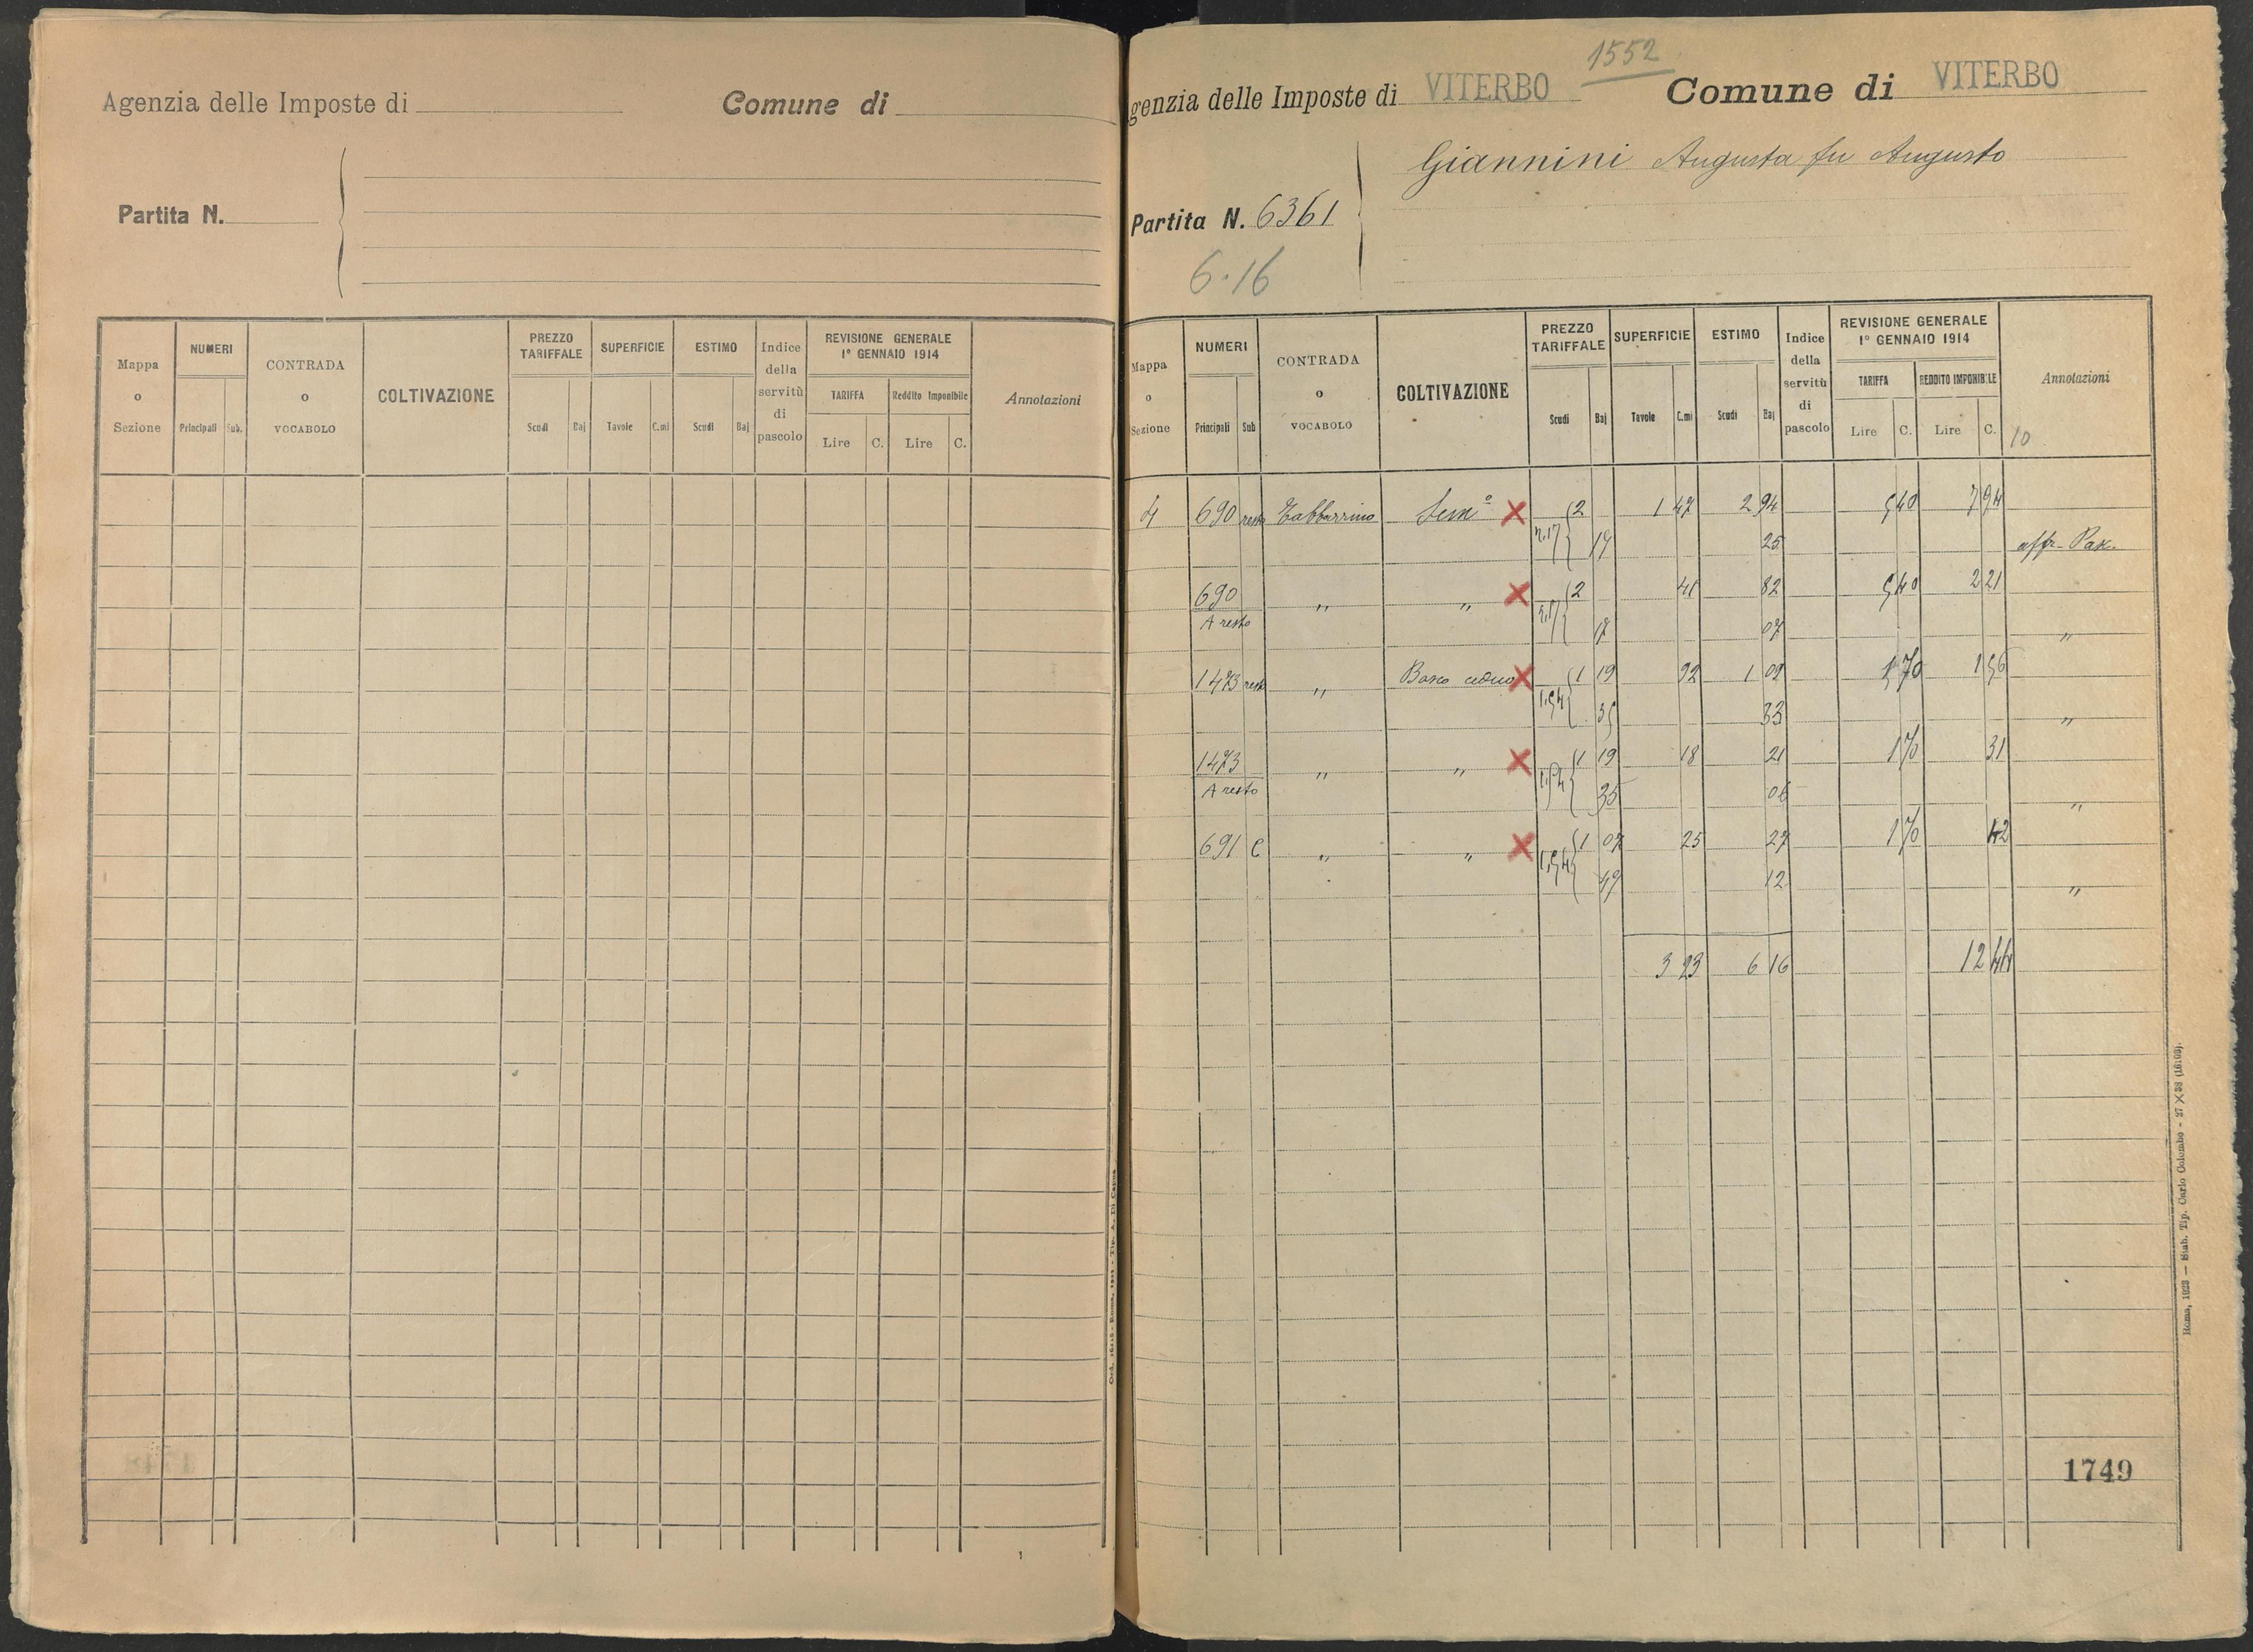 Agenzia delle Imposte di
Comune di
Partita N.
Mappa o Sezione
NUMERI
Principali Sub.
CONTRADA o VOCABOLO
COLTIVAZIONE
PREZZO TARIFFALE
Scudi Baj
SUPERFICIE
Tavole C.mi
ESTIMO
Scudi Baj
Indice della servitù di pascolo
REVISIONE GENERALE
1° GENNAIO 1914
TARIFFA Reddito Imponibile
Lire C. Lire C.
Annotazioni
1552
genzia delle Imposte di VITERBO Comune di VITERBO
Giannini Augusta fu Augusto
Partita N. 6361
6.16
Mappa o Sezione
NUMERI
Principali Sub
CONTRADA o VOCABOLO
COLTIVAZIONE
PREZZO TARIFFALE
Scudi Baj
SUPERFICIE
Tavole C.mi
ESTIMO
Scudi Baj
Indice della servitù di pascolo
REVISIONE GENERALE
1° GENNAIO 1914
TARIFFA REDDITO IMPONIBILE
Lire C. Lire C.
Annotazioni
10
4 690 resto Sem° X 2 1 47 2 94 5 40 7 94
2.17 17 25 affr. Pas.
690 " " X 2 41 82 5 40 2 21
A resto 2.17 17 07 "
1473 resto " Bosco ceduo X 1 19 92 1 09 1 70 1 56
1.54 35 33 "
1473 " " X 1 19 18 21 1 70 31
A resto 1.54 35 06 "
691 C " " X 1 07 25 27 1 70 42
1.54 47 12 "
3 23 6 16 12 44
1749
Roma, 1923 — Stab. Tip. Carlo Colombo - 27 X 38 (16108).